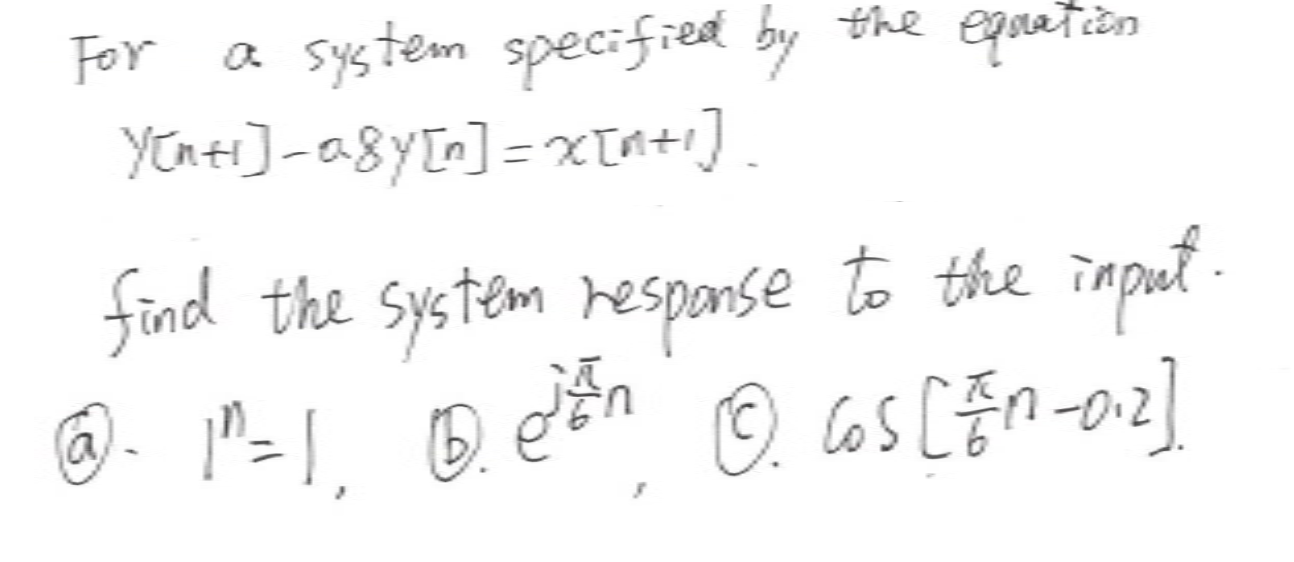 For a system specified by the equation
y[n+1]-0.8y[n]=x[n+1].
find the system response to the input.
ⓐ. 1ⁿ=1, ⓑ. e^{j\frac{π}{6}n}, ⓒ. Cos[\frac{π}{6}n-0.2].